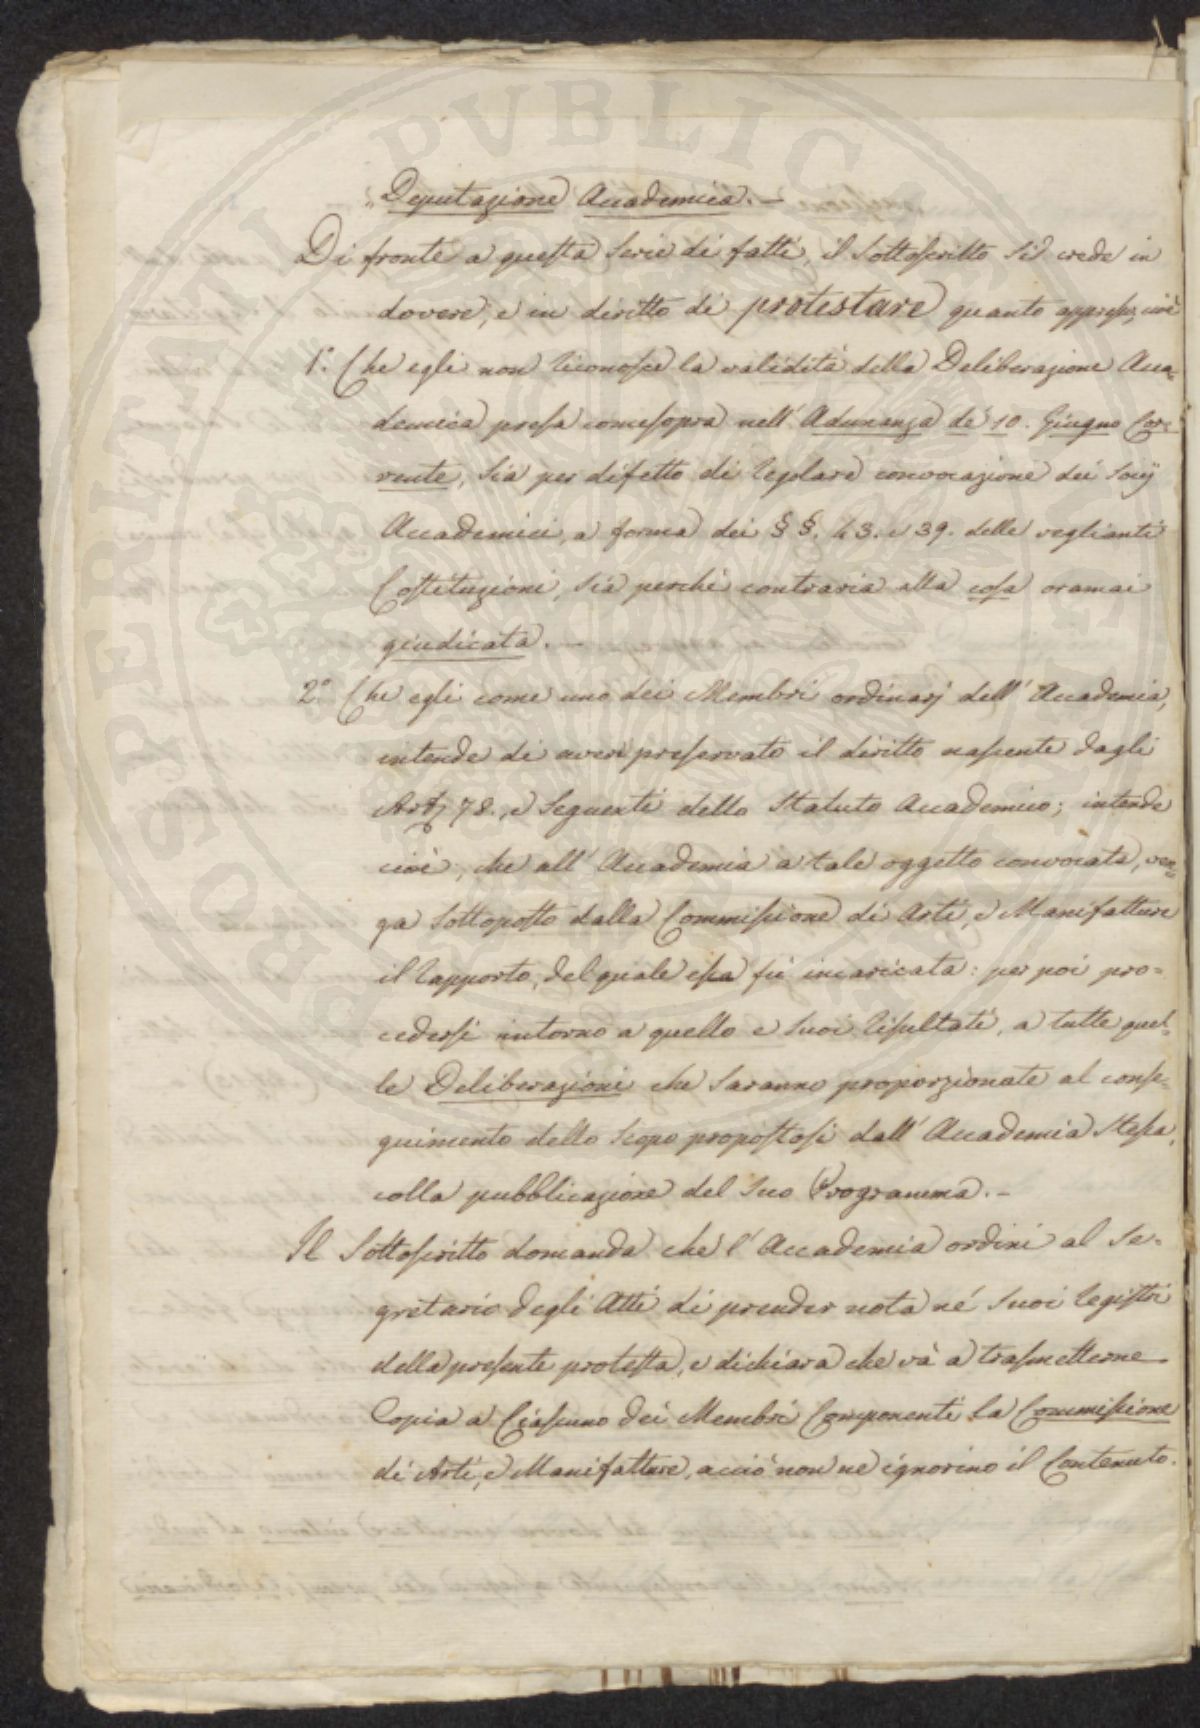 „Deputazione Accademica. —
Di fronte a questa Serie di fatti, il Sottoscritto si crede in
dovere, e in diritto di protestare quanto appresso, cioè
1.° Che egli non riconosce la validità della Deliberazione Acca-
demica presa comesopra nell' Adunanza de' 10. Giugno Cor-
rente, sia per difetto di regolare convocazione dei Socij
Accademici, a forma dei §§. 43. e 39. delle veglianti
Costituzioni, sia perchè contraria alla cosa oramai
giudicata. —
2.° Che egli come uno dei Membri ordinarj dell' Accademia,
intende di aver preservato il diritto nascente dagli
Art. 78., e Seguenti dello Statuto Accademico; intende
cioè, che all' Accademia a tale oggetto convocata, ven-
ga Sottoposto dalla Commissione di Arti, e Manifatture
il rapporto, del quale essa fù incaricata: per poi pro-
cedersi intorno a quello e suoi risultati, a tutte quel-
le Deliberazioni che Saranno proporzionate al conse-
guimento dello Scopo propostosi dall' Accademia Stessa,
colla pubblicazione del Suo Programma. —
Il Sottoscritto domanda che l' Accademia ordini al Se-
gretario degli Atti di prender nota né Suoi registri
della presente protesta, e dichiara che và a trasmetterne
Copia a Ciascuno dei Membri Componenti la Commissione
di Arti, e Manifatture, acciò non ne ignorino il Contenuto.
PROSPERITATI PVBLICAE